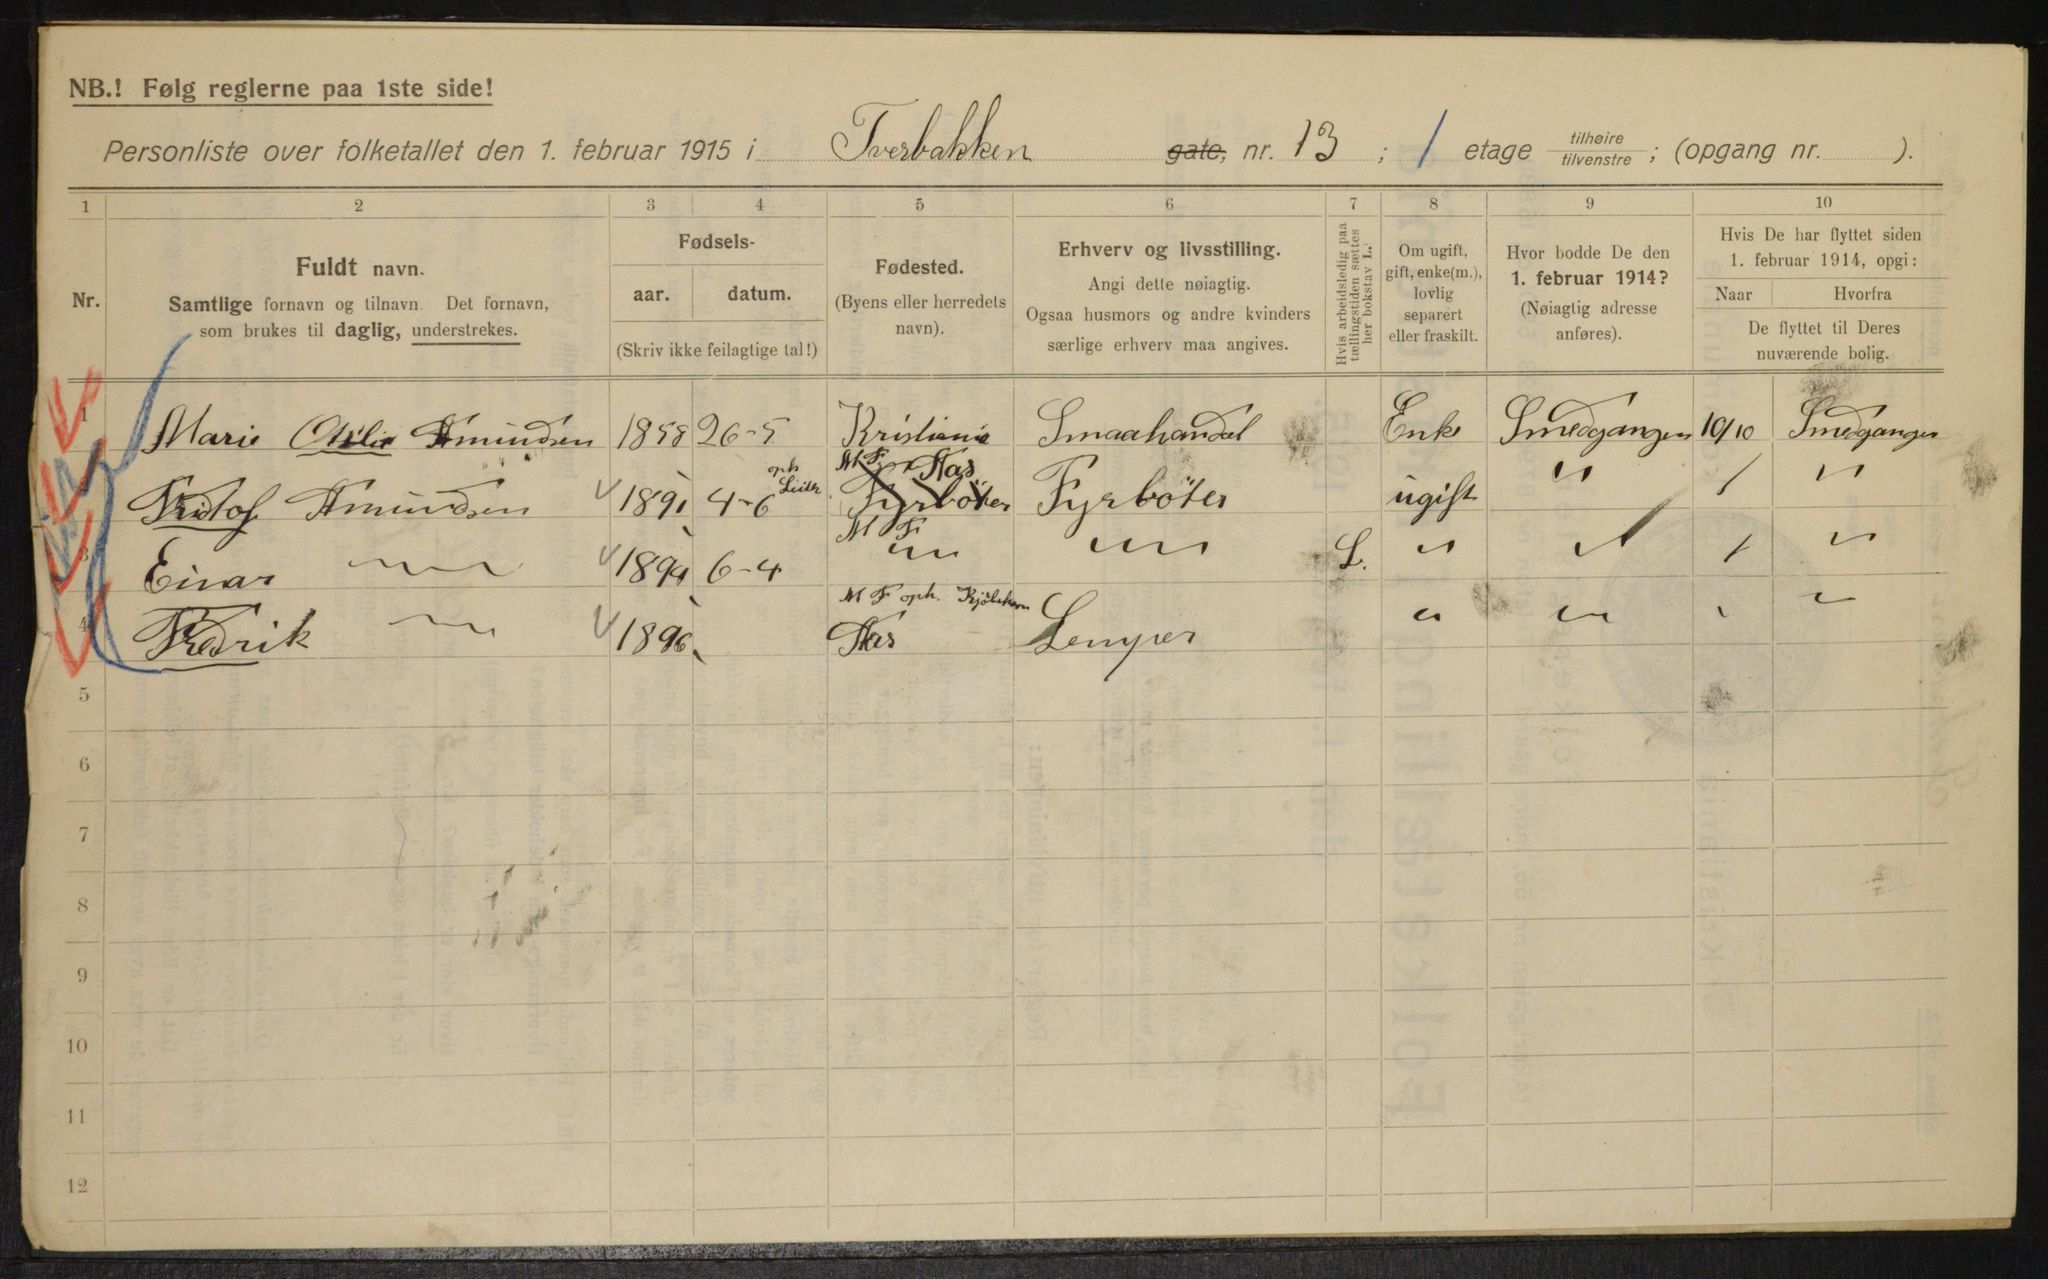 NB.! Følg reglerne paa 1ste side!
Personliste over folketallet den 1. februar 1915 i Tverbakken gate, nr. 13 ; 1 etage tilhøire tilvenstre ; (opgang nr. ).
1 2 3 4 5 6 7 8 9 10
Nr.
Fuldt navn.
Samtlige fornavn og tilnavn. Det fornavn,
som brukes til daglig, understrekes.
Fødsels-
aar. datum.
(Skriv ikke feilagtige tal!)
Fødested.
(Byens eller herredets
navn).
Erhverv og livsstilling.
Angi dette nøiagtig.
Ogsaa husmors og andre kvinders
særlige erhverv maa angives.
Hvis arbeidsledig paa
tællingstiden sættes
her bokstav L.
Om ugift,
gift, enke(m.),
lovlig
separert
eller fraskilt.
Hvor bodde De den
1. februar 1914?
(Nøiagtig adresse
anføres).
Hvis De har flyttet siden
1. februar 1914, opgi:
Naar Hvorfra
De flyttet til Deres
nuværende bolig.
1 Marie Otilie Amundsen 1858 26-5 Kristiania Smaahandel Enke Smedgangen 10/10 Smedgangen
M F Aas
Fridtof Amundsen 1891 4-6 Fyrböter Fyrböter ugift " / "
M F
3 Einar " 1894 6-4 " " L. " " / "
M F oph.
4 Fredrik " 1896 Aas Lemper " " " "
5
6
7
8
9
10
11
12